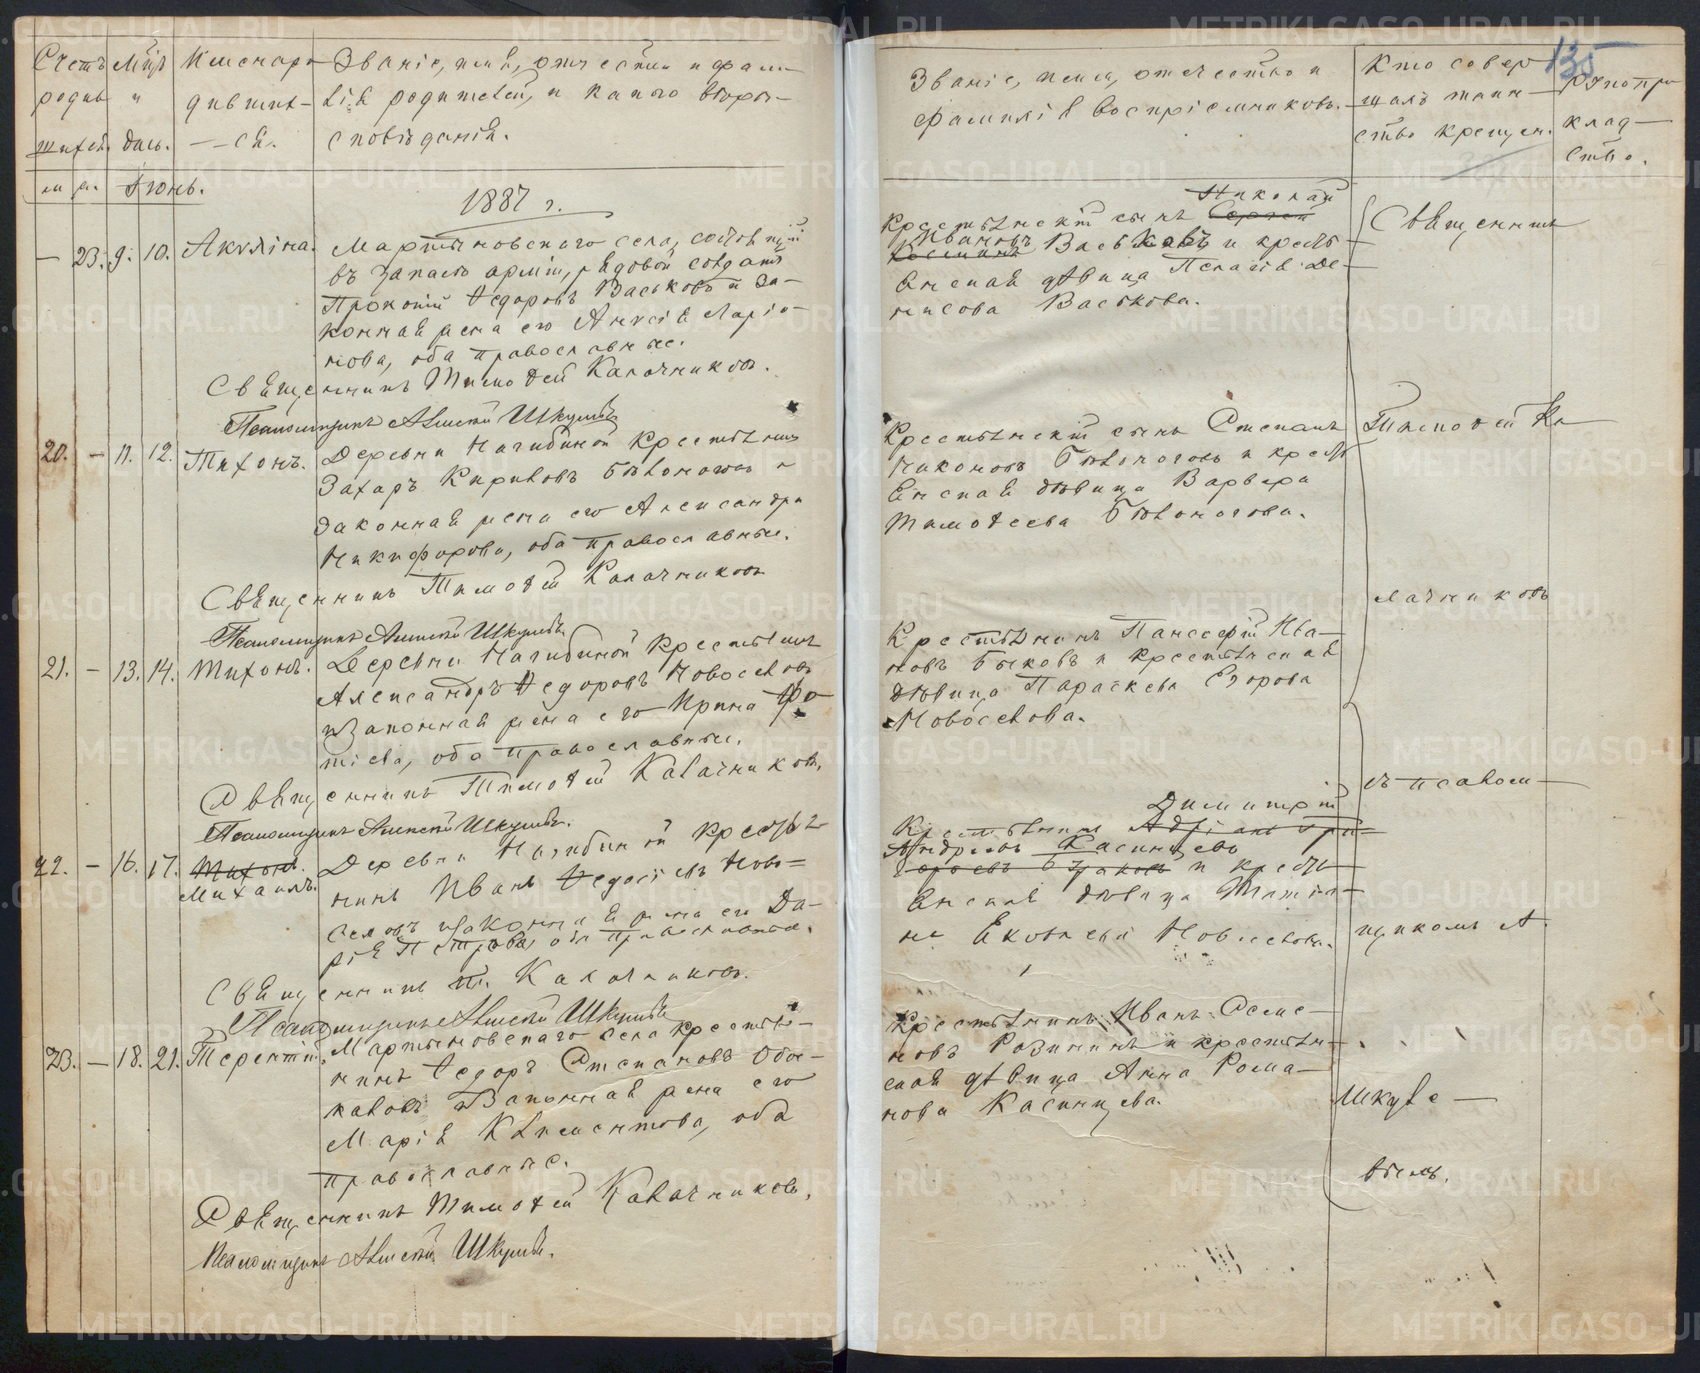 Счетъ Мѣц. Имена ро- Званіе, имя, отчество и фами-
родив и дивших- лія родителей, и какого вѣро-
шихся. день. -ся. исповѣданія.
м. ж. Іюнь.
1887 г.
— 23. 9. 10. Акулина. Мартыновскаго села, состоящій
въ запасѣ арміи, рядовой солдатъ
Прокопій Ѳедоровъ Васьковъ и за-
конная жена его Анисія Ларіо-
нова, оба православные.
Священникъ Тимоѳей Калачниковъ.
Псаломщикъ Алексѣй Шкулевъ
20. — 11. 12. Тихонъ. Деревни Нагибиной крестьянинъ
Захаръ Кириловъ Бѣлоноговъ и
законная жена его Александра
Никифорова, оба православные.
Священникъ Тимоѳей Калачниковъ
Псаломщикъ Алексѣй Шкулевъ
21. — 13. 14. Тихонъ. Деревни Нагибиной крестьянинъ
Александръ Ѳедоровъ Новоселовъ
и законная жена его Ирина Фо-
тіева, оба православные.
Священникъ Тимоѳей Калачниковъ.
Псаломщикъ Алексѣй Шкулевъ.
22. — 16. 17. Тихонъ. Деревни Нагибиной крестья-
Михаилъ. нинъ Иванъ Ѳедосѣевъ Ново-
селовъ и законная жена его Да-
рія Петрова, оба православные.
Священникъ Тим. Калачниковъ.
Псаломщикъ Алексѣй Шкулевъ
23. — 18. 21. Терентій. Мартыновскаго села крестья-
нинъ Ѳедоръ Степановъ
и законная жена его
Марія Климентова, оба
православные.
Священникъ Тимоѳей Калачниковъ.
Псаломщикъ Алексѣй Шкулевъ.
135
Званіе, имя, отчество и Кто совер- Рукопри-
фамилія воспріемниковъ. шалъ таин- клад-
ство крещен. ство.
Николай
Крестьянскій сынъ Сергей Священникъ
Ивановъ Васьковъ и кресть-
янская дѣвица Пелагія Де-
нисова Васькова.
Крестьянскій сынъ Степанъ Тимоѳей Ка-
Никоновъ Бѣлоноговъ и кресть-
янская дѣвица Варвара
Тимоѳеева Бѣлоногова.
лачниковъ
Крестьянинъ Панесофій Ива-
новъ Быковъ и крестьянская
дѣвица Параскева Егорова
Новоселова.
съ псалом-
Димитрій
Крестьянинъ Адріанъ Гри-
Андреевъ Касинцевъ
горьевъ и кресть-
янская дѣвица Татіа-
на Яковлева Новоселова.
щикомъ А.
Крестьянинъ Иванъ Семе-
новъ Розининъ и крестьян-
ская дѣвица Анна Рома-
нова Касинцева.
Шкуле-
вымъ.
METRIKI.GASO-URAL.RU